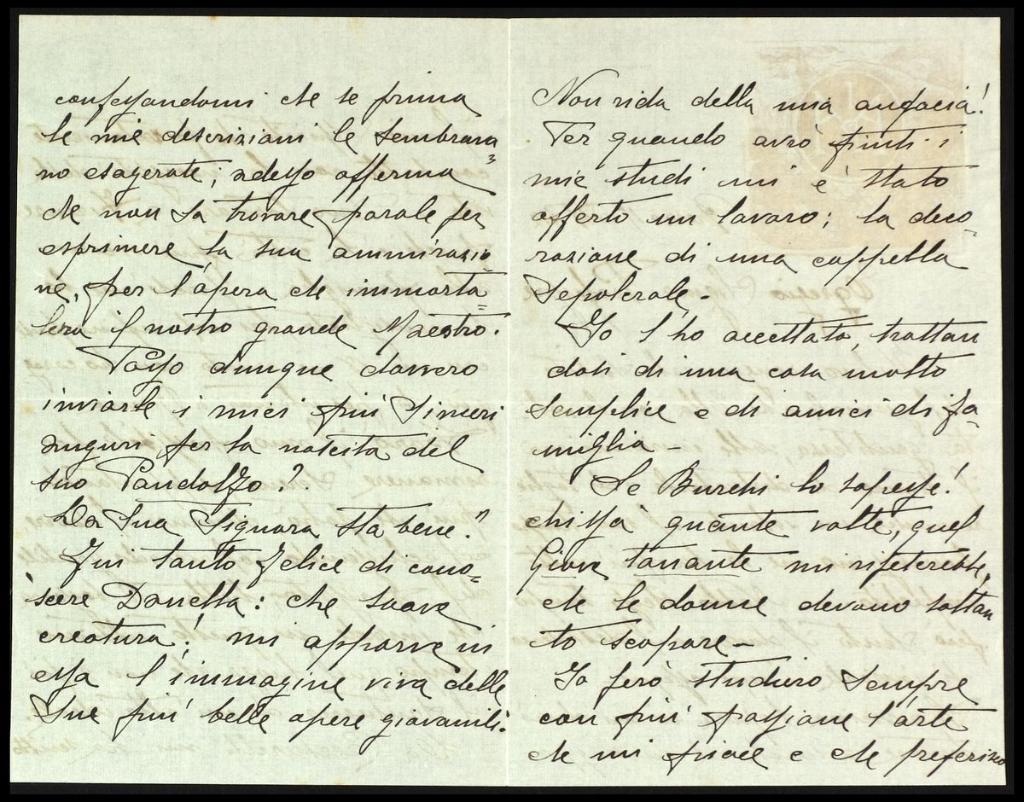 confessandomi che se prima
le mie descrizioni le sembrava=
no esagerate; adesso afferma
che non sa trovare parole per
esprimere la sua ammirazio
ne, per l'opera che immorta=
lerà il nostro grande Maestro.
Posso dunque davvero
inviarle i miei più sinceri
auguri per la nascita del
suo Pandolfo?.
La Sua Signora sta bene?
Fui tanto felice di cono=
scere Donella: che soave
creatura! mi apparve in
essa l'immagine viva delle
Sue più belle opere giovanili.
Non rida della mia audacia!
Per quando avrò finiti i
miei studi mi è stato
offerto un lavoro; la deco-
razione di una cappella
Sepolcrale-
Io l'ho accettato, trattan
dosi di una cosa molto
semplice e di amici di fa-
miglia-
Se Burchi lo sapesse!
chissà quante volte, quel
Giove tonante mi ripeterebbe,
che le donne devono soltan
to scopare-
Io però studierò sempre
con più passione l'arte
che mi piace e che preferisco